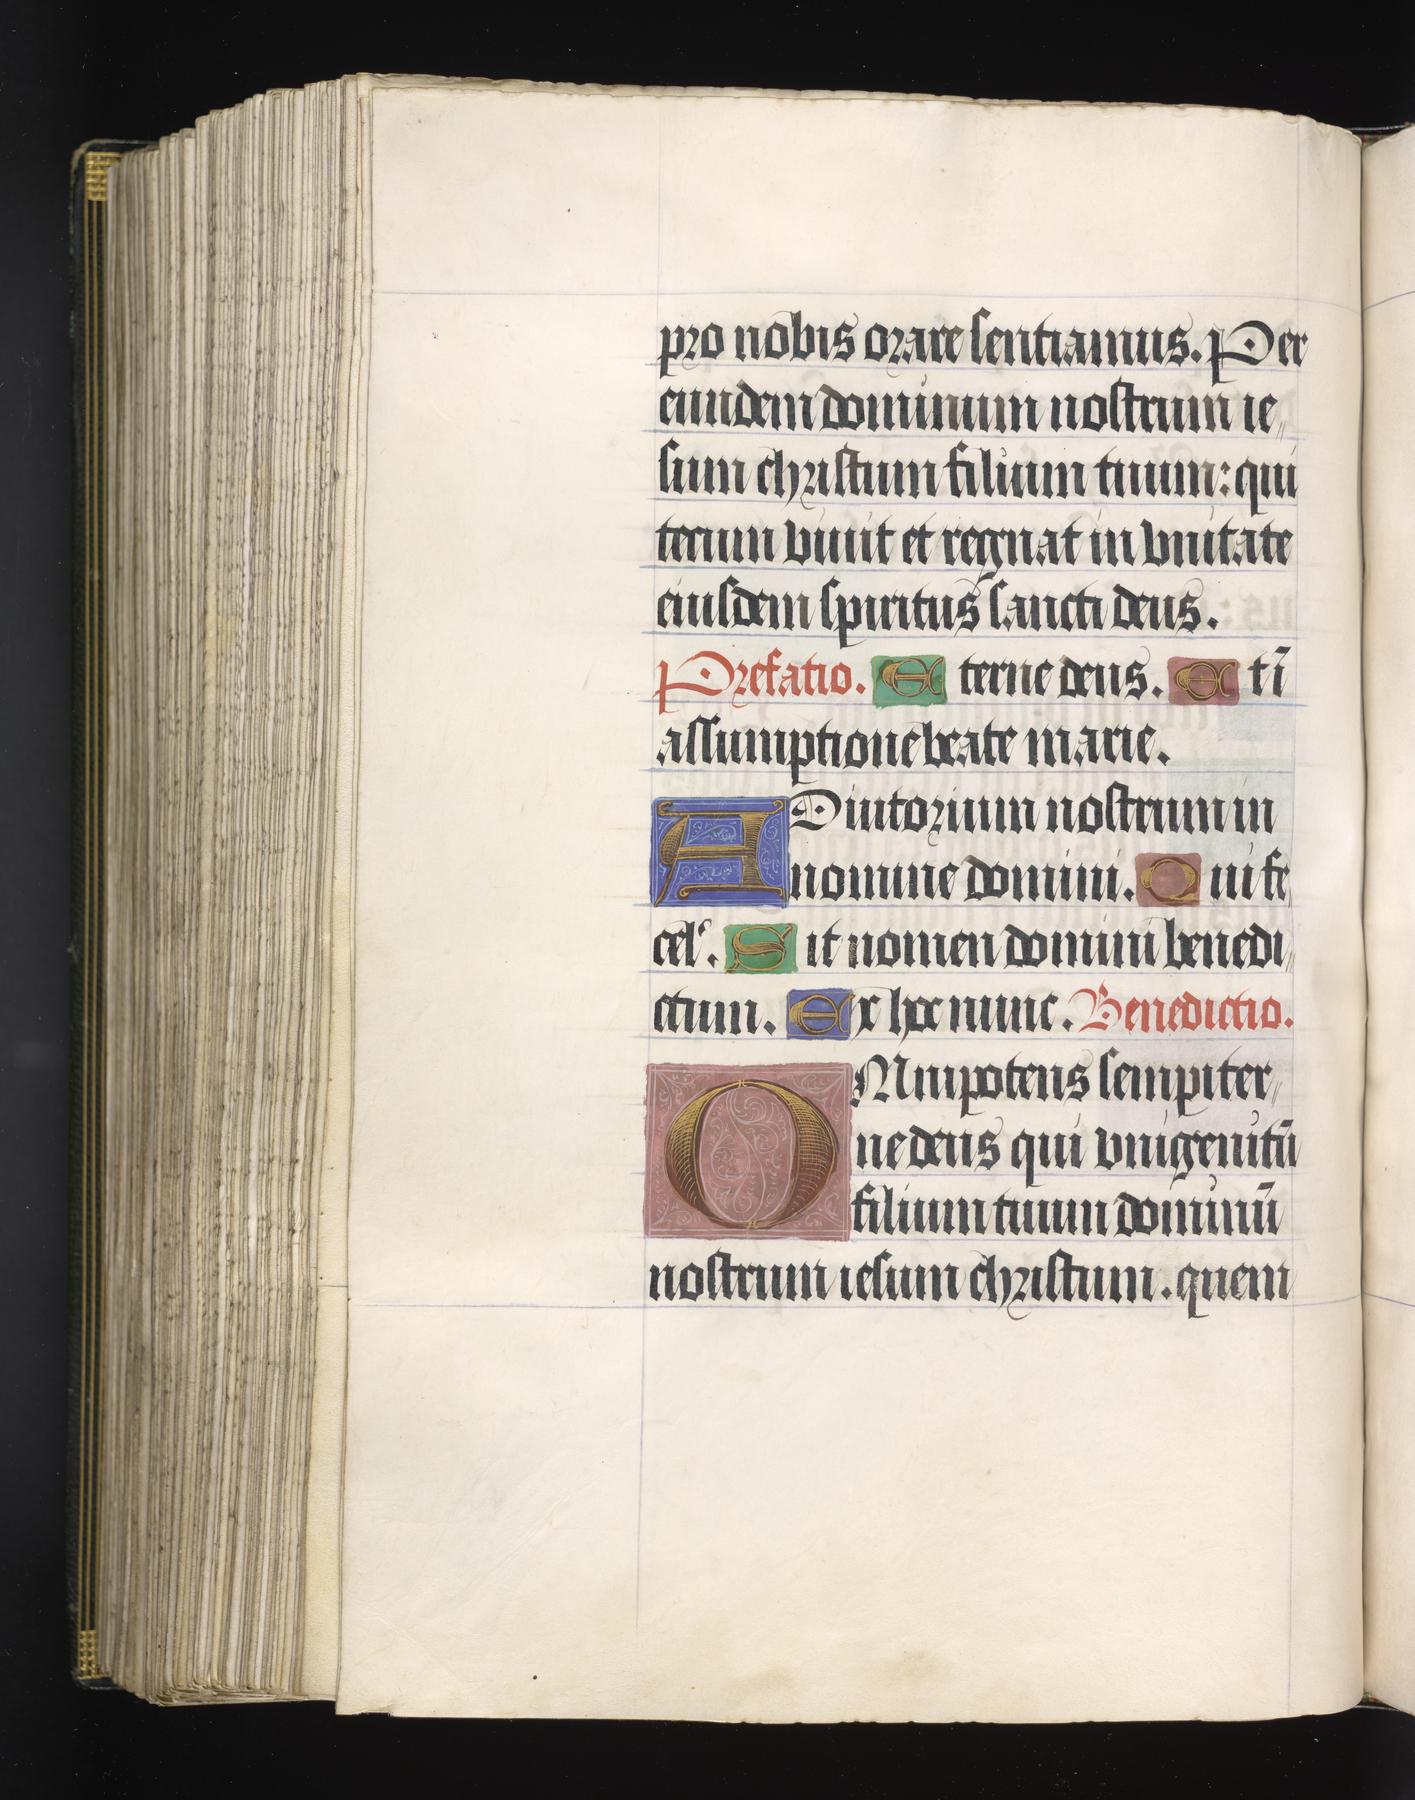 pro nobis orare sentiamus. Per
eiusdem dominum nostrum ie„
sum christum filium tuum: qui
tecum viuit et regnat in vnitate
eiusdem spiritus sancti deus.
Prefatio. E terne deus. E t ī
assumptione beate marie.
ADiutorium nostrum in
nomine domini. Q ui fe„
cel'. S it nomen domini benedi„
ctum. Ex hoc nunc. Benedictio.
OMnipotens sempiter„
ne deus qui vnigenitū
filium tuum dominū
nostrum iesum christum. quem